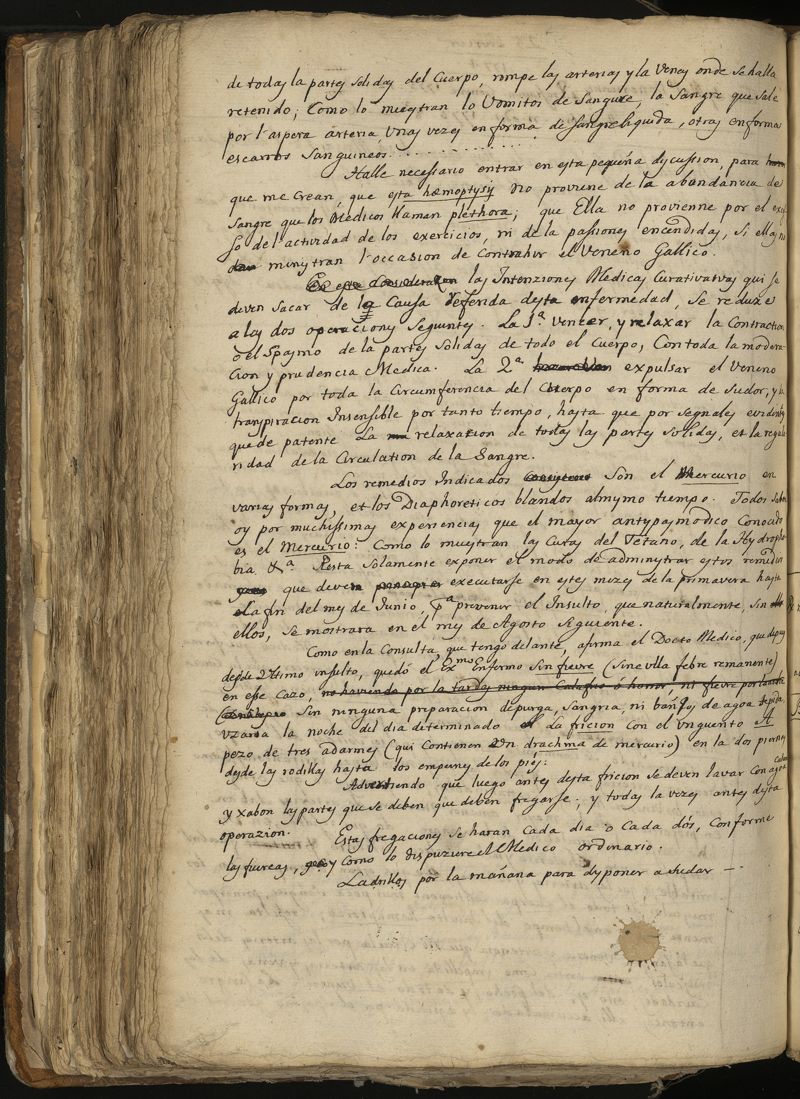 de todas la partes solidas del Cuerpo, rompe las arterias y la Venas onde se halla
retenido; Como lo muestran lo Vomitos de Sangure, la Sangre que sale
por l'aspera arteria Unas vezes en forma de sangre liquida, otras en forma
escarros Sanguineos. . . . . . . . . . .
Halle necessario entrar en esta pequeña dyscussion, para
que me crean, que esta hæmoptysis no proviene de la abundancia de
Sangre que los Medicos llaman plethora; que Ella no provienne por el exces
so del'actividad de los exercicios, ni de la passiones encendidas, si ellas no
minystran l'occasion de Contrahir el Veneno Gallico.
las Intenziones Medicas Curativas qui se
deven sacar de la Causa referida desta enfermedad, se reduze
a las dos operaciones Seguintes. La 1ª vencer, y relaxar la Contraction
o el Spasmo de la partes Solidas de todo el Cuerpo, Con toda la modera-
cion y prudencia Medica. La 2ª expulsar el Veneno
Gallico por toda la Circumferencia del Cuerpo en forma de Sudor, y la
transpiracion Insensible por tanto tiempo, hasta que por segnales evidentes
quede patente la relaxacion de todas las partes Solidas, et la regula
ridad de la Circulation de la Sangre.
Los remedios Indicados Son el Mercurio en
varias formas, et los Diaphoreticos blandos almysmo tiempo. Todos saben
oy por muchissimas experiencias que el mayor antyspasmodico Conocido
es el Mercurio: Como lo muestran las Curas del Tetano, de la Hydropho
bia &ª. Resta Solamente exponer el modo de adminystrar estos remedios
que deven executarse en estes mezes de la primavera hasta
el a fin del mes de Junio, pª prevenir el Insulto, que naturalmente, sin
ellos, se mostrara en el mes de Agosto Seguiente.
Como en la Consulta, que tengo delante, afirma el Docto Medico, que despues
desde Ultimo insulto, quedó el Exmo Enfermo Sin fievre (Sine ulla febre remanente)
en esse Cazo, no haviendo por la tardes ningun Calofrio ó horror, ni fievre por la noche
Sin ninguna preparacion de purga, sangria, ni baños de agoa tepida,
Uzaria la noche del dia determinado La fricion con el Unguento A
pezo de tres adarmes (qui contienen Un drachma de mercurio) en la dos piernas
desde las rodillas hasta los empeynes de los piés:
Advertiendo que luego antes desta fricion se deven lavar con agoa
caliente
y xabon las partes que se deben que deben fregarse; y todas la vezes antes desta
operazion.
Estas fregaciones se haran Cada dia o Cada dós, Conforme
las fuerças, y Como lo dispuziere el Medico ordinario.
Ladrillos por la mañana para dysponer a sudar —.